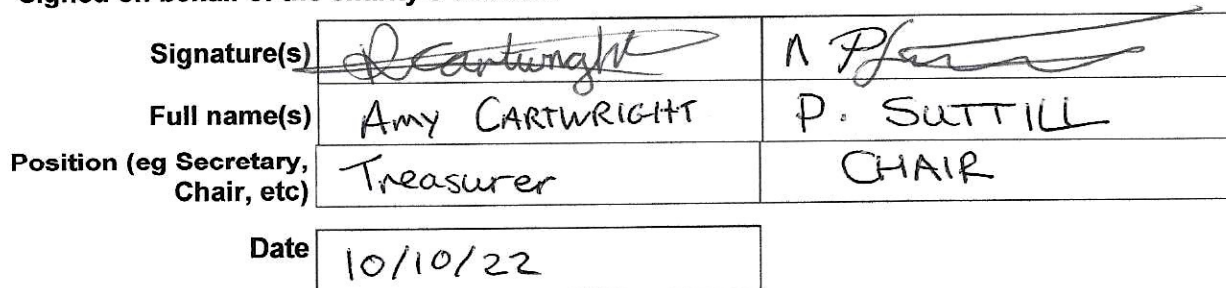 Signature(s) Cartwright
Full name(s) Amy CARTWRIGHT P. SUTTILL
Position (eg Secretary, Chair, etc) Treasurer CHAIR
Date 10/10/22